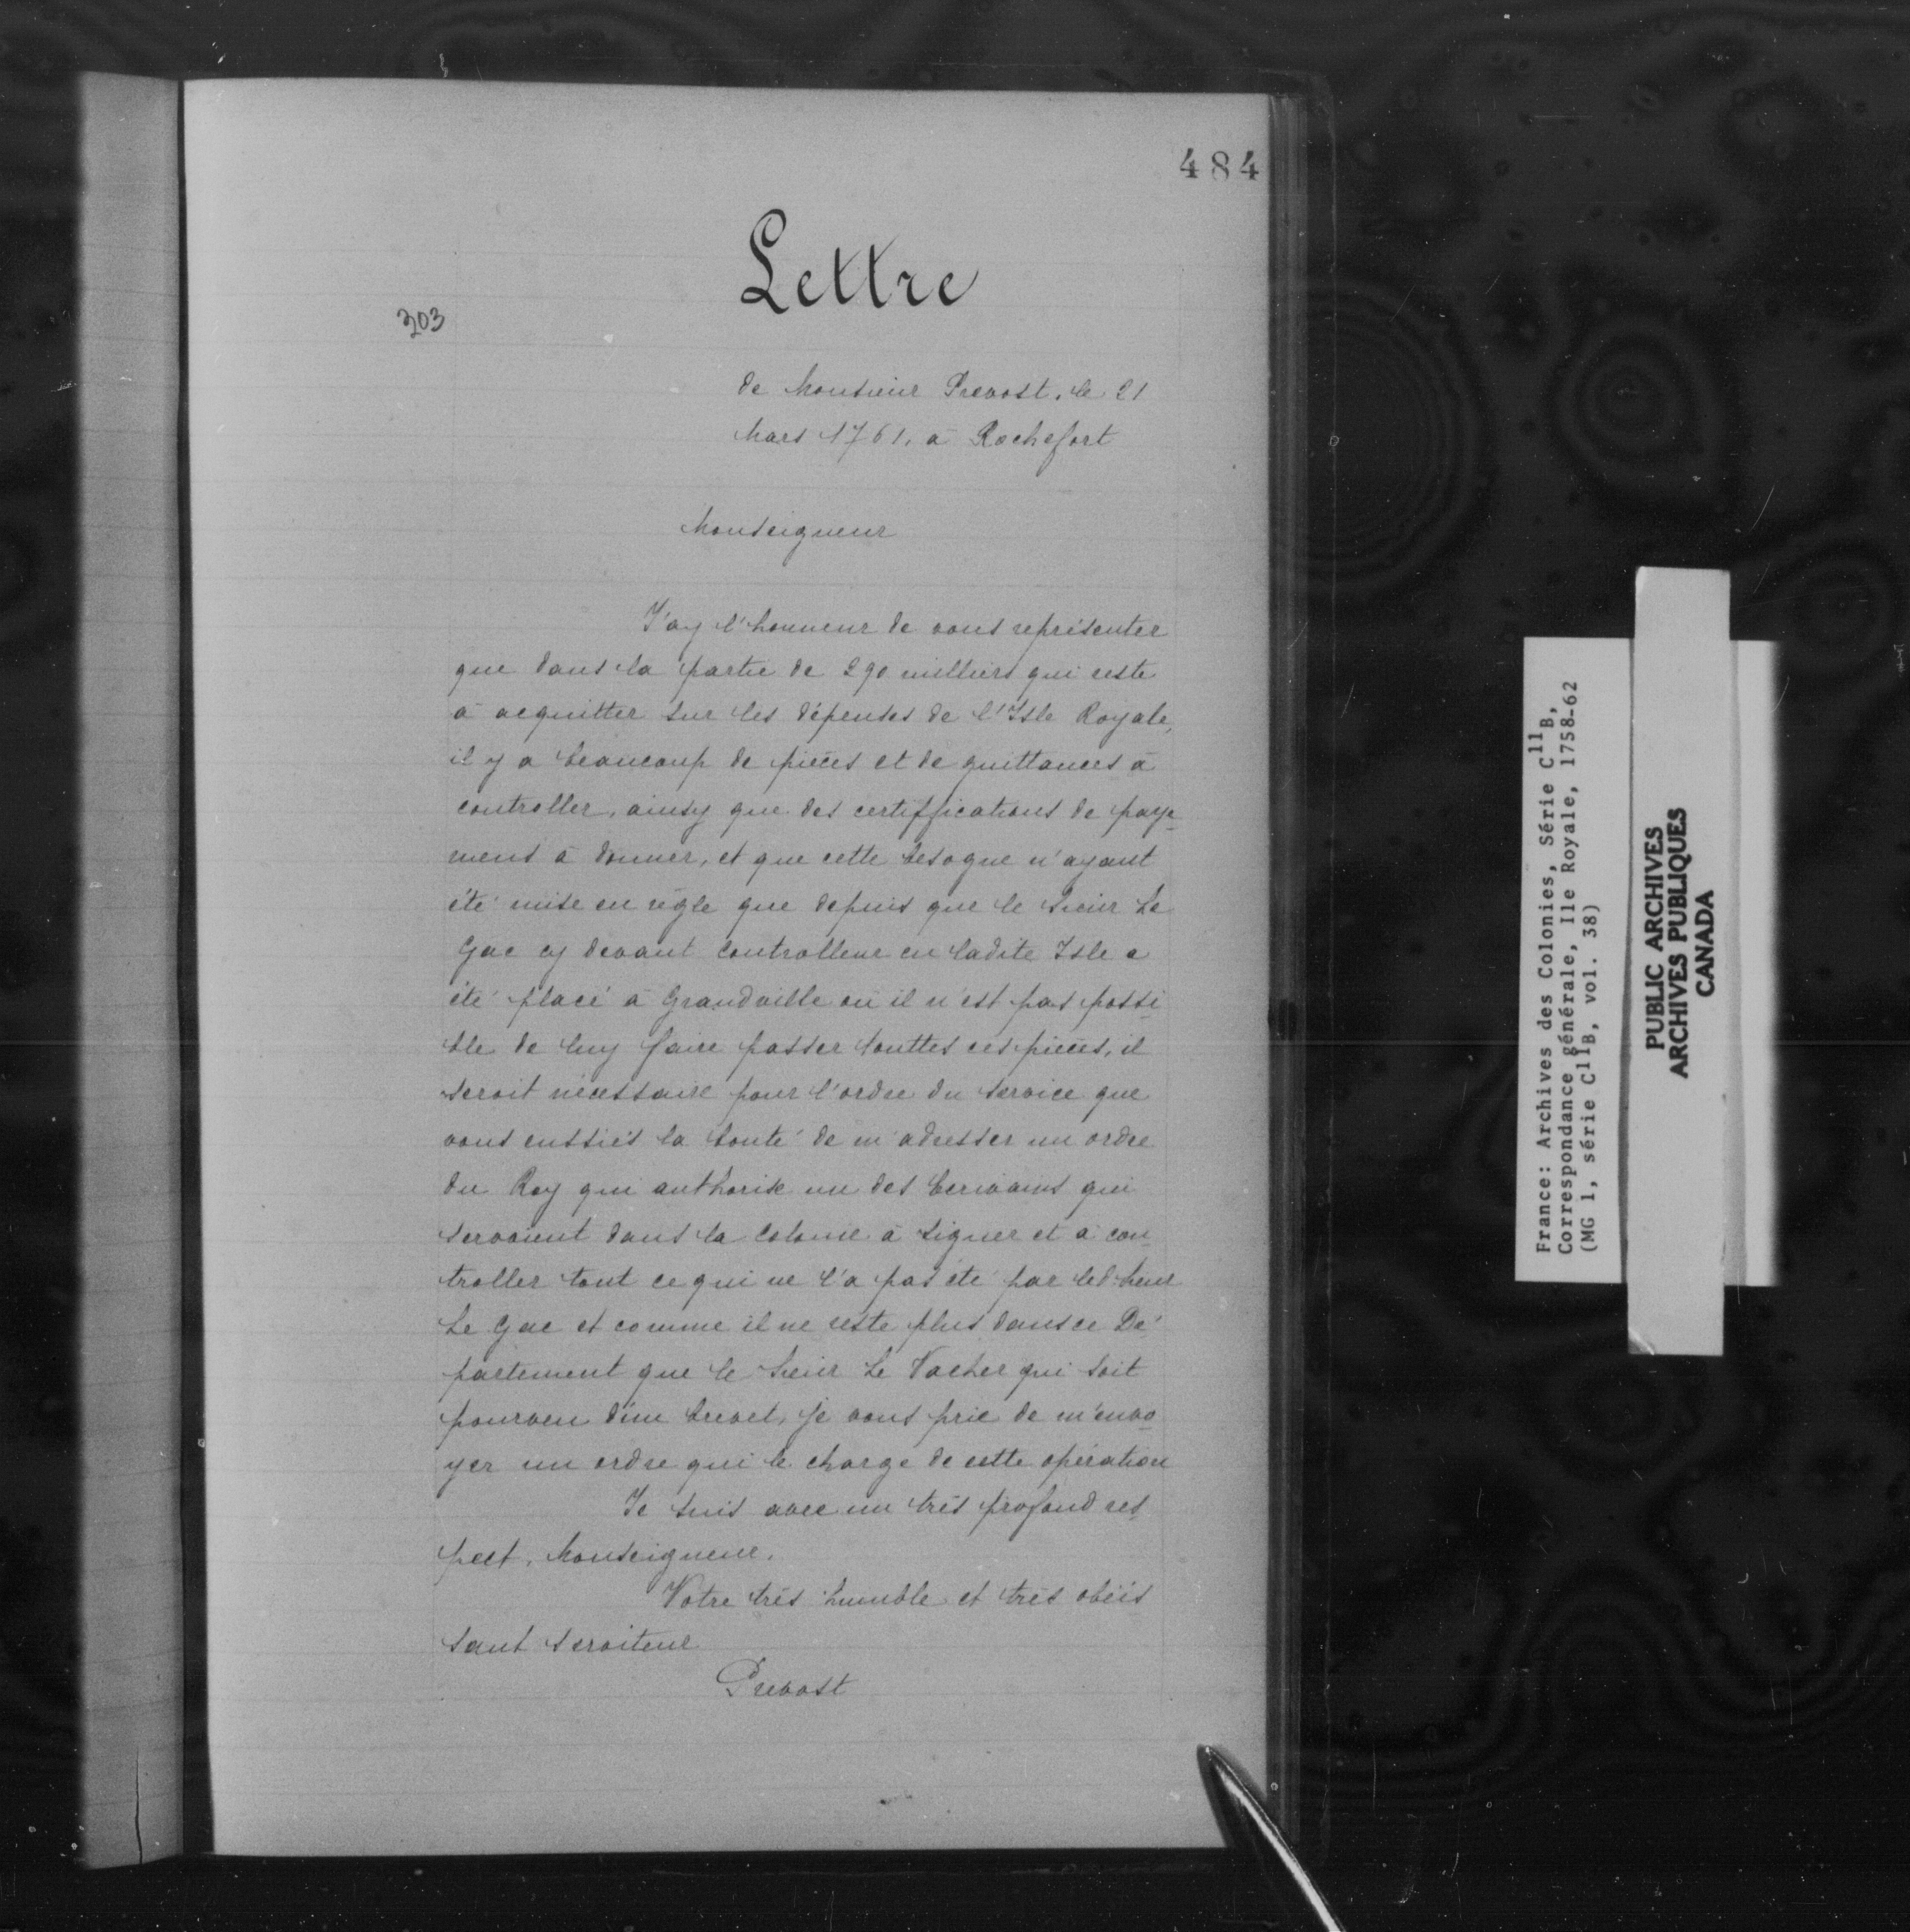 484
Lettre
303
de Monsieur Prevost, le 21
Mars 1761, à Rochefort
Monseigneur
J'ay l'honneur de vous représenter
que dans la partie de 290 milliers qui reste
à acquitter sur les dépenses de l'Isle Royale,
il y a beaucoup de pièces et de quittances à
controller, ainsy que des certiffications de paye-
mens à donner, et que cette besogne n'ayant
été mise en règle que depuis que le Sieur Le
Gac cy devant controlleur en ladite Isle a
été placé à Grandville où il n'est pas possi-
ble de luy faire passer touttes ces pièces, il
seroit nécessaire pour l'ordre du service que
vous eussiés la bonté de m'adresser un ordre
du Roy qui authorise un des Ecrivains qui
servoient dans la colonie à signer et à con-
troller tout ce qui ne l'a pas été par led. Sieur
Le Gac et comme il ne reste plus dans ce Dé-
partement que le Sieur Le Vacher qui soit
pourveu d'un brevet, je vous prie de m'envo-
yer un ordre qui le charge de cette opération
Je suis avec un très profond res-
pect, Monseigneur,
Votre très humble et très obéis
sant serviteur
Prevost
France: Archives des Colonies, Série C11B,
Correspondance générale, Ile Royale, 1758-62
(MG 1, série C11B, vol. 38)
PUBLIC ARCHIVES
ARCHIVES PUBLIQUES
CANADA